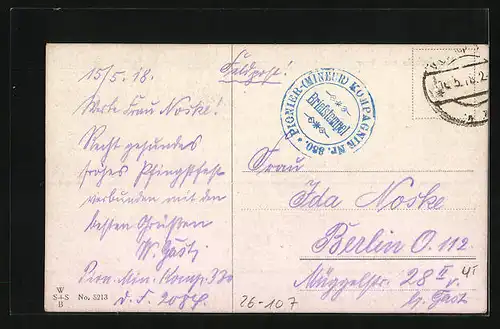 15/5. 18.
Werte Frau Noske!
Recht gesundes
frohes Pfingstfest
verbunden mit den
besten Grüßen
W. Gast
Pion. Min. Komp.
D. F.
Feldpost!
PIONIER-(MINEUR) KOMPAGNIE Nr. 350.
Briefstempel
Frau
Ida Noske
Berlin O. 112
Müggelstr. 28 II
b. Gast
W
S+S
B
No. 5213
26-107